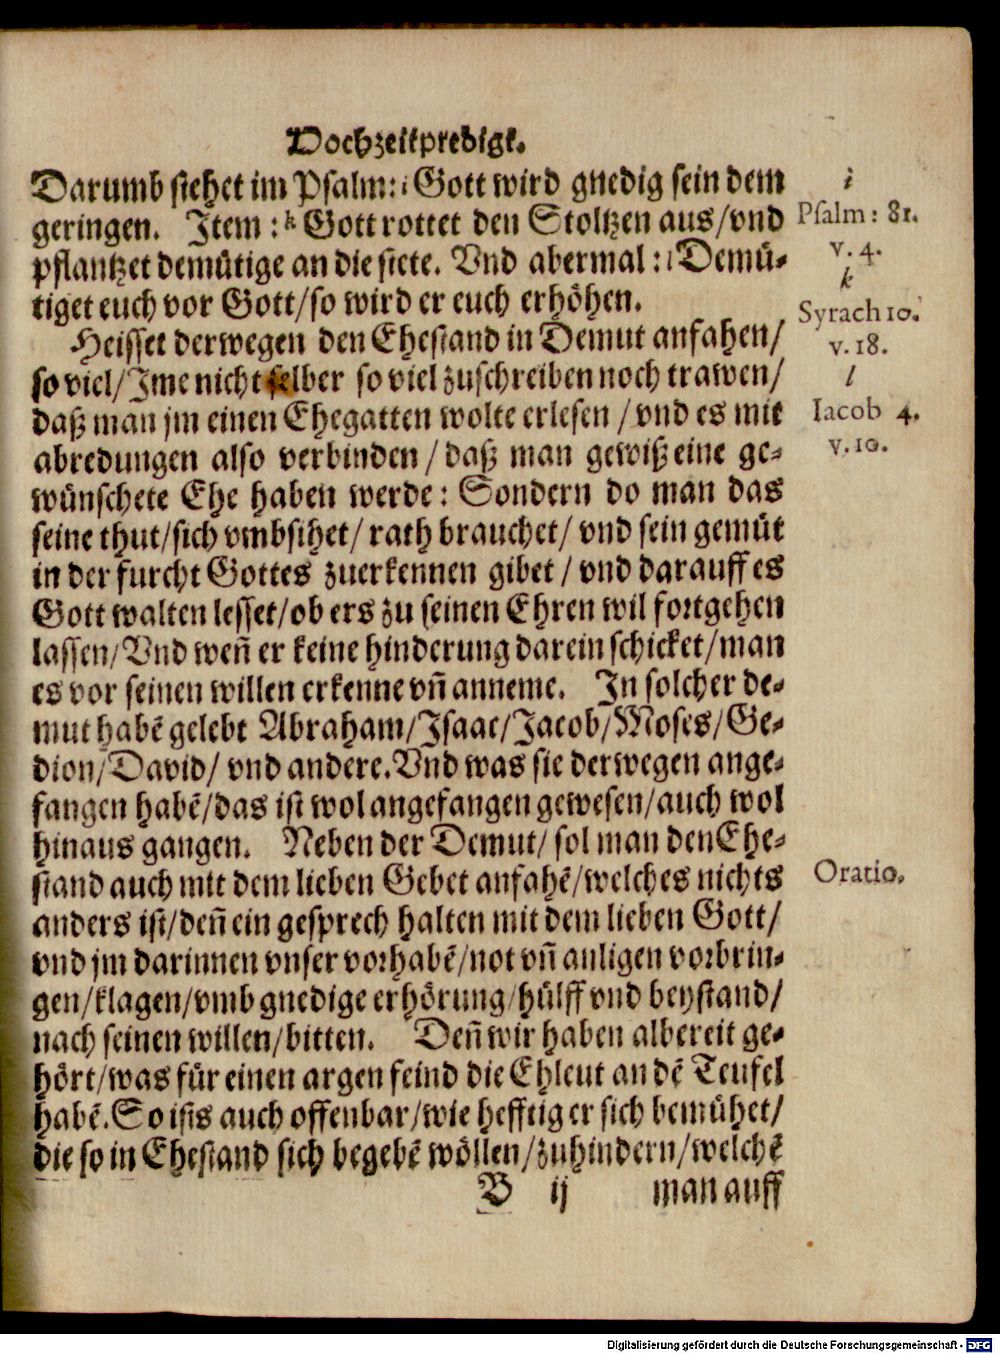 Hochzeitpredigt.
Darumb stehet im Psalm: i Gott wird gnedig sein dem
geringen. Item : k Gott rottet den Stoltzen aus/vnd
pflantzet demütige an die stete. Vnd abermal : l Demü-
tiget euch vor Gott/so wird er euch erhöhen.
Heisset derwegen den Ehestand in Demut anfahen/
so viel/Ime nicht selber so viel zuschreiben noch trawen/
daß man jm einen Ehegatten wolte erlesen /vnd es mit
abredungen also verbinden/daß man gewiß eine ge-
wünschete Ehe haben werde: Sondern do man das
seine thut/sich vmbsihet/ rath brauchet/ vnd sein gemüt
in der furcht Gottes zuerkennen gibet / vnd darauff es
Gott walten lesset/ob ers zu seinen Ehren wil fortgehen
lassen/Vnd weñ er keine hinderung darein schicket/man
es vor seinen willen erkenne vñ anneme. In solcher de-
mut habẽ gelebt Abraham/Isaac/Jacob/Moses/Ge-
dion/David/ vnd andere.Vnd was sie derwegen ange-
fangen habẽ/das ist wol angefangen gewesen/auch wol
hinaus gangen. Neben der Demut/ sol man den Ehe-
stand auch mit dem lieben Gebet anfahẽ/welches nichts
anders ist/deñ ein gesprech halten mit dem lieben Gott/
vnd jm darinnen vnser vorhabẽ/not vñ anligen vorbrin-
gen/klagen/vmb gnedige erhörung/hülff vnd beystand/
nach seinen willen/bitten. Deñ wir haben albereit ge-
hört/was für einen argen feind die Ehleut an dẽ Teufel
habẽ.So ists auch offenbar/wie hefftig er sich bemühet/
die so in Ehestand sich begebẽ wöllen/zuhindern/welchẽ
B ij man auff
i
Psalm: 81.
v. 4.
k
Syrach 10.
v. 18.
l
Iacob 4.
v. 10.
Oratio.
Digitalisierung gefördert durch die Deutsche Forschungsgemeinschaft - DFG